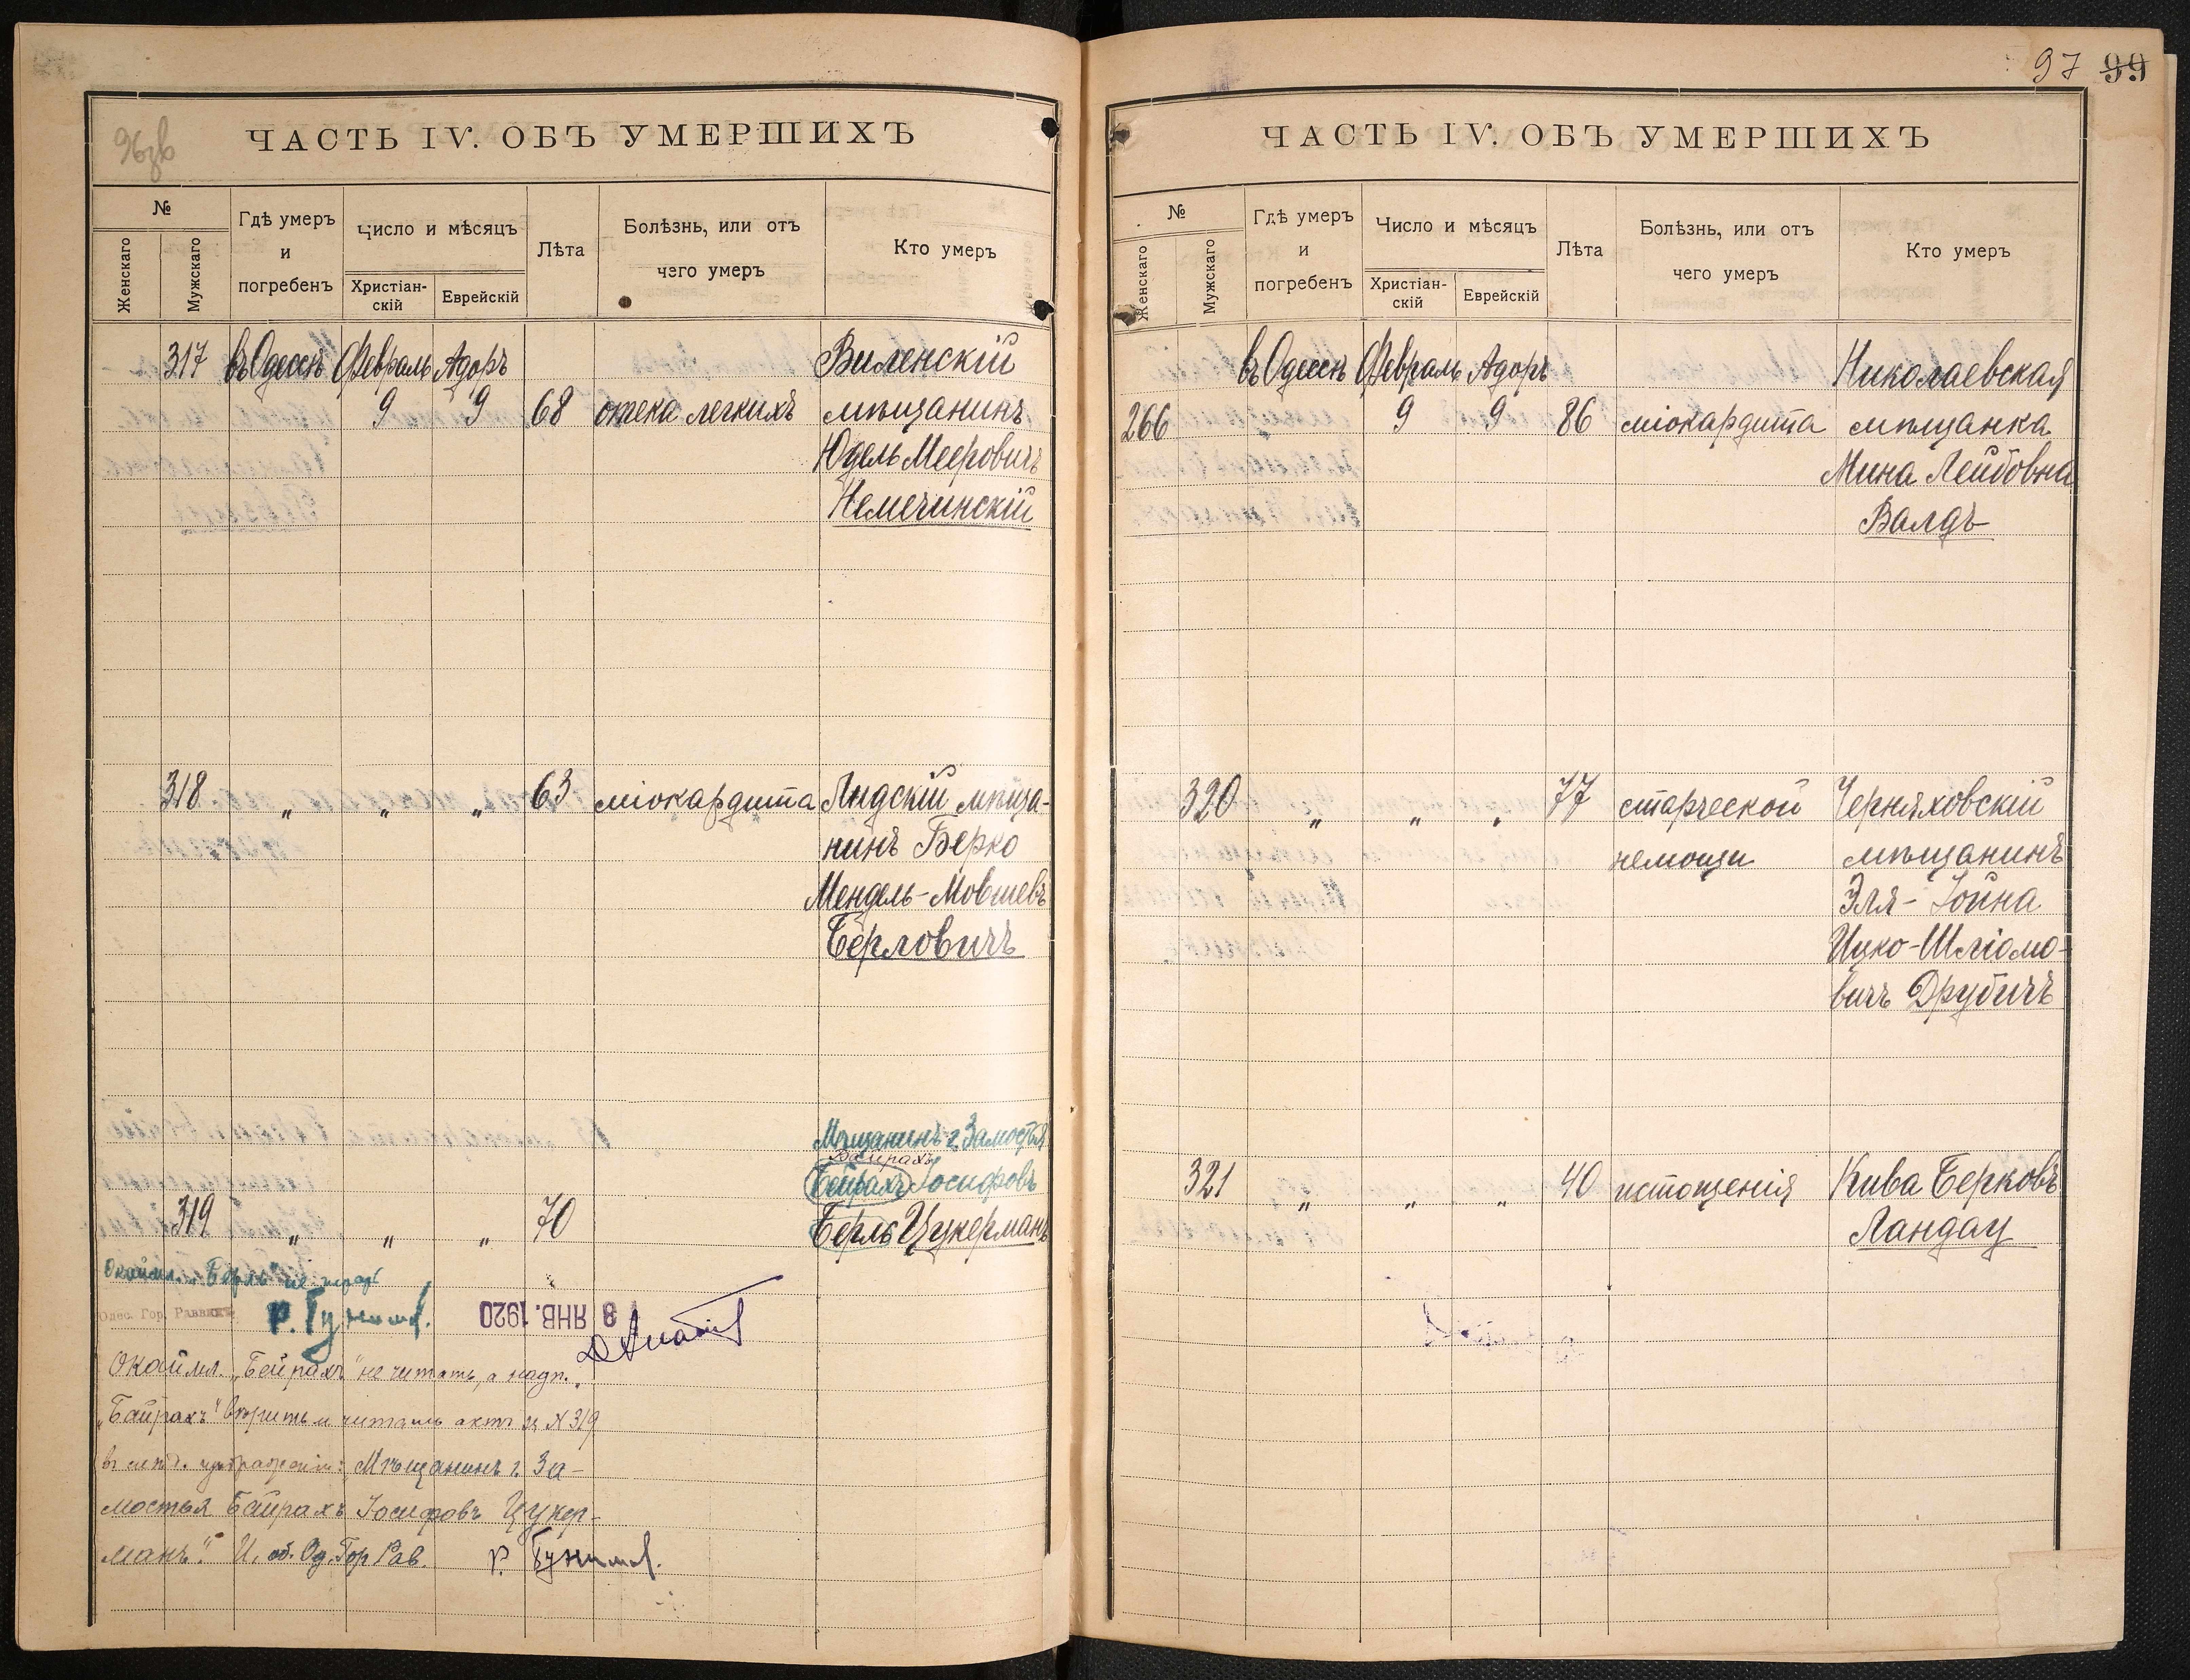 96 зв
ЧАСТЬ IV. ОБЪ УМЕРШИХЪ
№
Женскаго
Мужскаго
Гдѣ умеръ
и
погребенъ
Число и мѣсяцъ
Христіан-
скій
Еврейскій
Лѣта
Болѣзнь, или отъ
чего умеръ
Кто умеръ
317 въ Одессѣ Февраль Адоръ Виленскій
9 9 68 отека легкихъ мѣщанинъ
Юдель Мееровичъ
Немечинскій
318 „ „ „ 63 міокардита Лидскій мѣща-
нинъ Берко
Мендель-Мовшевъ
Берловичъ
Мѣщанинъ г. Замостья
Байрахъ
Бейрахъ Іосифовъ
319 „ „ „ 70 Берль Цукерманъ
Окаймл. „Берль" не читать
Одес. Гор. Раввинъ
8 ЯНВ. 1920
Окаймл. „Бейрахъ" не читать, а надп.
„Байрахъ" вѣрить и читать актъ за № 319
въ слѣд. изображеніи: Мѣщанинъ г. За-
мостья Байрахъ Іосифовъ Цукер-
манъ". И. об. Од. Гор Рав.
97 99
ЧАСТЬ IV. ОБЪ УМЕРШИХЪ
№
Женскаго
Мужскаго
Гдѣ умеръ
и
погребенъ
Число и мѣсяцъ
Христіан-
скій
Еврейскій
Лѣта
Болѣзнь, или отъ
чего умеръ
Кто умеръ
въ Одессѣ Февраль Адоръ Николаевская
266 9 9 86 міокардита мѣщанка
Мина Лейбовна
Валдъ
320 „ „ „ 77 старческой Черняховскій
немощи мѣщанинъ
Эля-Іойна
Ицко-Шліомо-
вичъ Друбичъ
321 „ „ „ 40 истощенія Кива Берковъ
Ландау